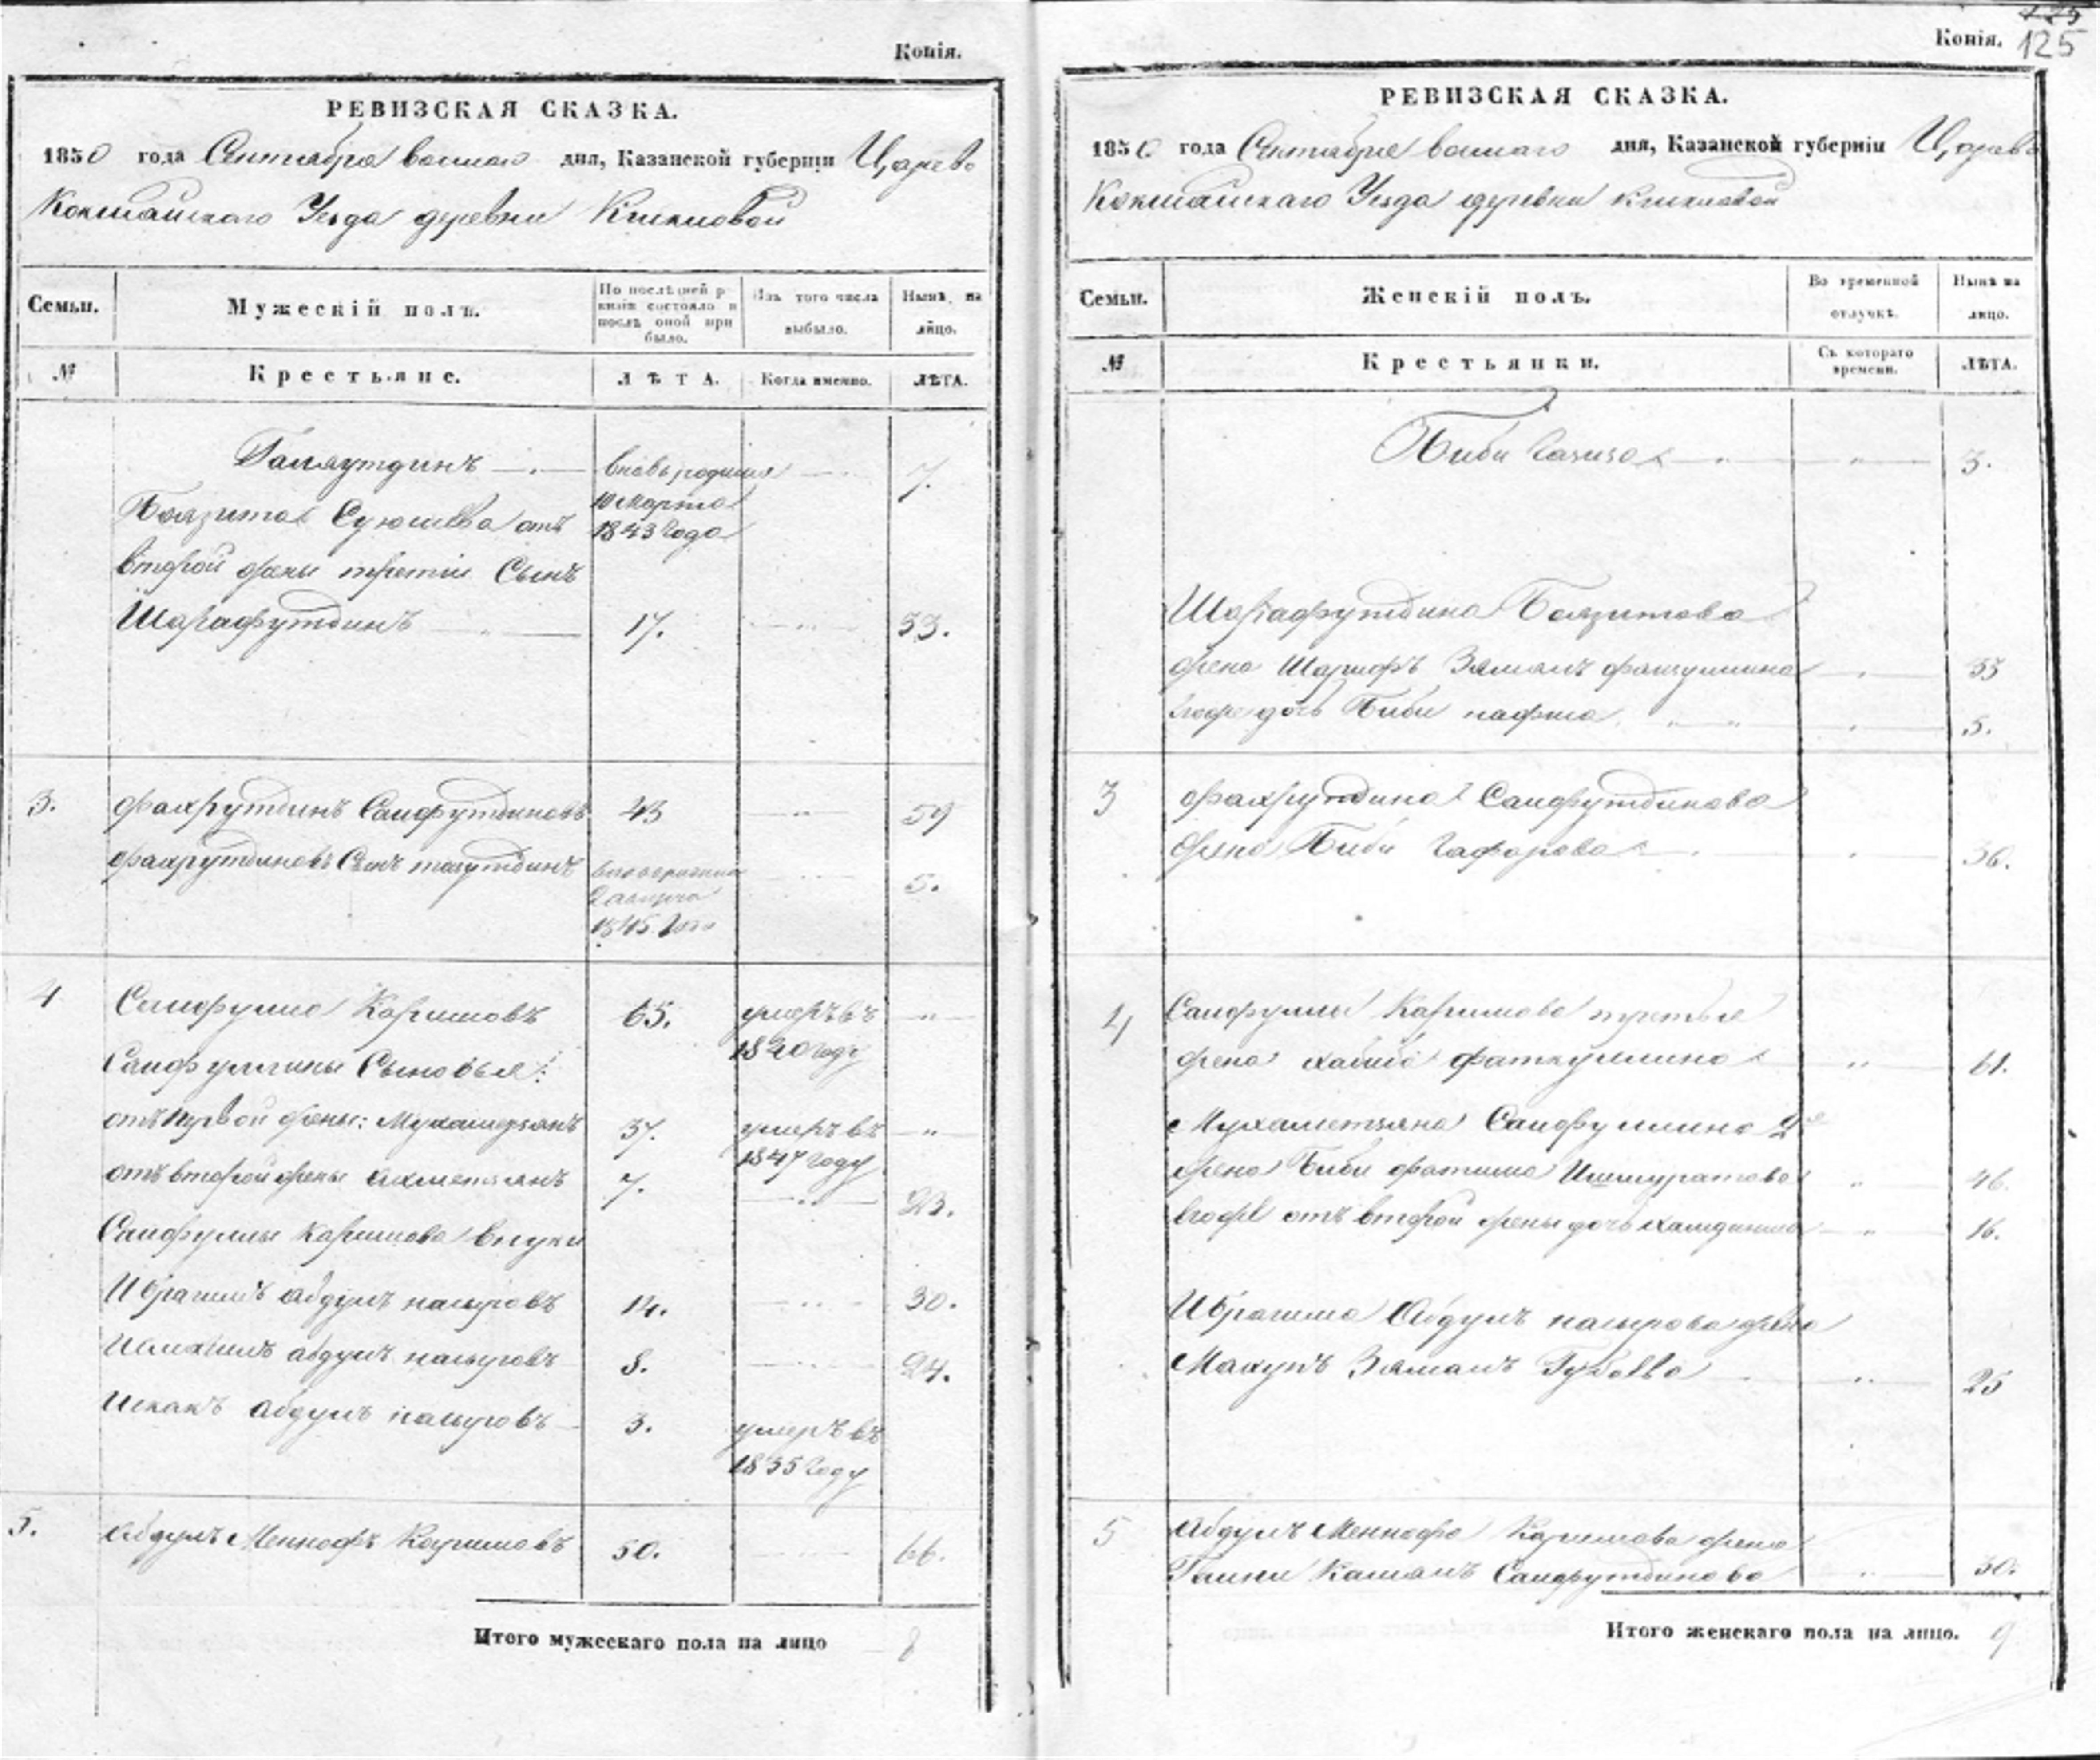 Копія.
РЕВИЗСКАЯ СКАЗКА.
1850 года Сентября дня, Казанской губерніи Царево
Кокшайскаго Уезда деревни
Семьи.
Мужескій полъ.
По послѣдней ревизіи состояло и послѣ оной прибыло.
Изъ того числа выбыло.
Нынѣ на лицо.
№
Крестьяне.
ЛѢТА.
Когда именно.
ЛѢТА.
Галяутдинъ вновь родился 7.
10 Марта
Баязита от
1843 Года
второй жены третій Сынъ
Шарафутдинъ 17. 33.
3. Фахрутдинъ Саифутдиновъ 43 59
Фахрутдиновъ Сынъ 5.
1845 Года
4 Саифулла Каримовъ 65. умеръ въ
1840 году
Саифуллины Сыновья:
отъ первой жены: Мухаметзянъ 37. умеръ въ
1847 году
отъ второй жены Ахметзянъ 7. 23.
Саифуллы Каримова внуки
Ибрагимъ Абдулъ насыровъ 14. 30.
Исмагилъ абдулъ насыровъ 8. 24.
Искакъ Абдулъ насыровъ 3. умеръ въ
1835 Году
5. Абдулъ Меннафъ Каримовъ 50. 66.
Итого мужескаго пола на лицо 8
Копія. 125
РЕВИЗСКАЯ СКАЗКА.
1850 года Сентября дня, Казанской губерніи Царево
Кокшайскаго Уезда деревни
Семьи.
Женскій полъ.
Во временной отлучкѣ.
Нынѣ на лицо.
№
Крестьянки.
Съ котораго времени.
ЛѢТА.
Биби 3.
Шарафутдина Баязитова
жена Шарифъ Зямалъ 33
дочь Биби 5.
3 Фахрутдина Саифутдинова
жена Биби Гафарова 36.
4 Саифуллы Каримова третья
жена хабиба фаткуллина 61.
Мухаметзяна Саифуллина 2я
жена Биби фатима Ишмуратова 46.
отъ второй жены дочь 16.
Ибрагима Абдулъ насырова жена
Зямалъ 25
5 Абдулъ Меннафа Каримова жена
Камалъ Саифутдинова 50.
Итого женскаго пола на лицо. 9